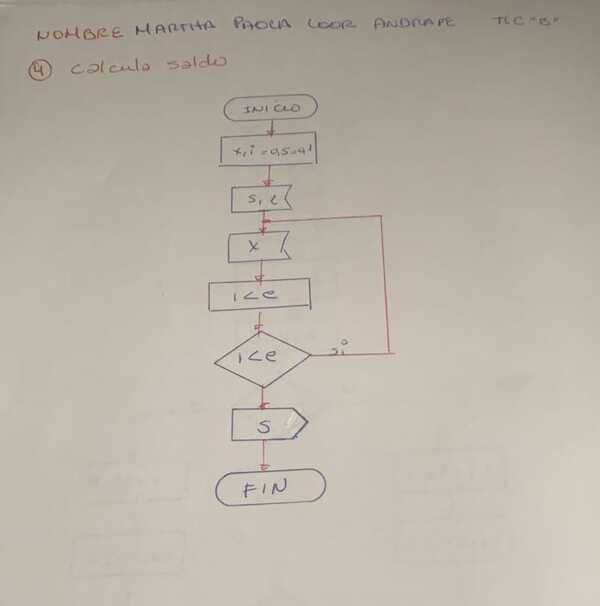 NOMBRE MARTHA PAOLA LOOR ANDRADE TLC "B"
4 Calculo saldo
INICIO
S, e
X
i<e
i<e si
S
FIN